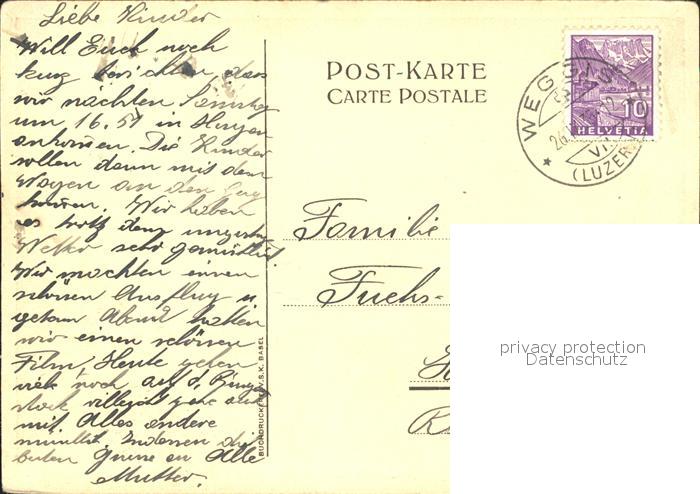 Liebe Kinder
Will Euch noch
kurz berichten, dass
wir nächsten Samstag
um 16.51 in
ankommen. Die Kinder
sollen dann mit dem
Wagen an den Zug
kommen. Wir haben
es trotz dem
Wetter sehr gemütlich.
Wir machten einen
schönen Ausflug u.
gestern Abend hatten
wir einen schönen
Film, Heute gehen
viele noch auf d. Bürgen
stock villeicht gehe auch
mit. Alles andere
mündlich. Indessen die
besten Grüsse an Alle
Mutter.
BUCHDRUCKEREI V.S.K. BASEL
POST-KARTE
CARTE POSTALE
WEGGIS
(LUZERN)
10
HELVETIA
Familie
Fuchs-
privacy protection
Datenschutz